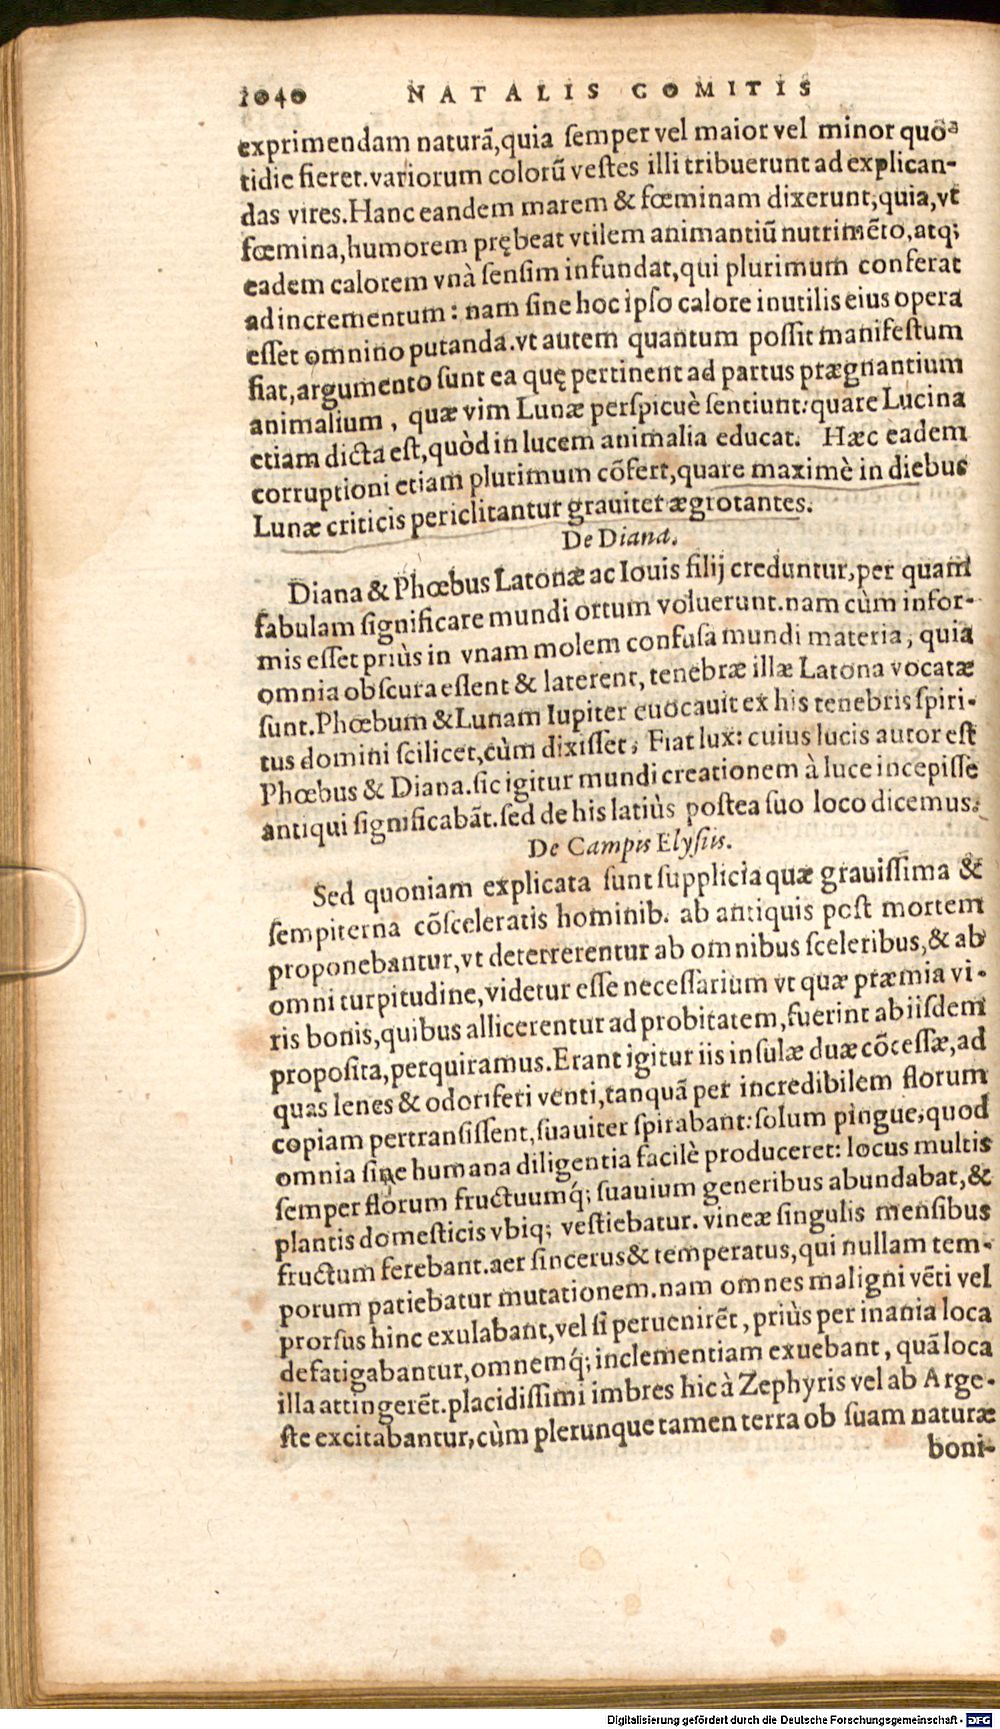 1040 NATALIS COMITIS
exprimendam naturã, quia ſemper vel maior vel minor quo⁠a
tidie fieret. variorum colorũ veſtes illi tribuerunt ad explican-
das vires. Hanc eandem marem & fœminam dixerunt, quia, vt
fœmina, humorem prębeat vtilem animantiũ nutrimẽto, atq;
eadem calorem vnà ſenſim infundat, qui plurimum conferat
ad incrementum: nam ſine hoc ipſo calore inutilis eius opera
eſſet omnino putanda. vt autem quantum poſſit manifeſtum
fiat, argumento ſunt ea quę pertinent ad partus prægnantium
animalium, quæ vim Lunæ perſpicuè ſentiunt: quare Lucina
etiam dicta eſt, quòd in lucem animalia educat. Hæc eadem
corruptioni etiam plurimum cõfert, quare maximè in diebus
Lunæ criticis periclitantur grauiter ægrotantes.
De Diana.
Diana & Phœbus Latonæ ac Iouis filij creduntur, per quam
fabulam ſignificare mundi ortum voluerunt. nam cùm infor-
mis eſſet priùs in vnam molem confuſa mundi materia, quia
omnia obſcura eſſent & laterent, tenebræ illæ Latona vocatæ
ſunt. Phœbum & Lunam Iupiter euocauit ex his tenebris ſpiri-
tus domini ſcilicet, cùm dixiſſet, Fiat lux: cuius lucis autor eſt
Phœbus & Diana. ſic igitur mundi creationem à luce incepiſſe
antiqui ſignificabãt. ſed de his latiùs poſtea ſuo loco dicemus.
De Campis Elyſiis.
Sed quoniam explicata ſunt ſupplicia quæ grauiſſima &
ſempiterna cõſceleratis hominib. ab antiquis poſt mortem
proponebantur, vt deterrerentur ab omnibus ſceleribus, & ab
omni turpitudine, videtur eſſe neceſſarium vt quæ præmia vi-
ris bonis, quibus allicerentur ad probitatem, fuerint ab iiſdem
propoſita, perquiramus. Erant igitur iis inſulæ duæ cõceſſæ, ad
quas lenes & odoriferi venti, tanquã per incredibilem florum
copiam pertranſiſſent, ſuauiter ſpirabant: ſolum pingue, quod
omnia ſine humana diligentia facilè produceret: locus multis
ſemper florum fructuumq́; ſuauium generibus abundabat, &
plantis domeſticis vbiq; veſtiebatur. vineæ ſingulis menſibus
fructum ferebant. aer ſincerus & temperatus, qui nullam tem-
porum patiebatur mutationem. nam omnes maligni vẽti vel
prorſus hinc exulabant, vel ſi peruenirẽt, priùs per inania loca
defatigabantur, omnemq́; inclementiam exuebant, quã loca
illa attingerẽt. placidiſſimi imbres hic à Zephyris vel ab Arge-
ſte excitabantur, cùm plerunque tamen terra ob ſuam naturæ
boni-
Digitalisierung gefördert durch die Deutsche Forschungsgemeinschaft - DFG